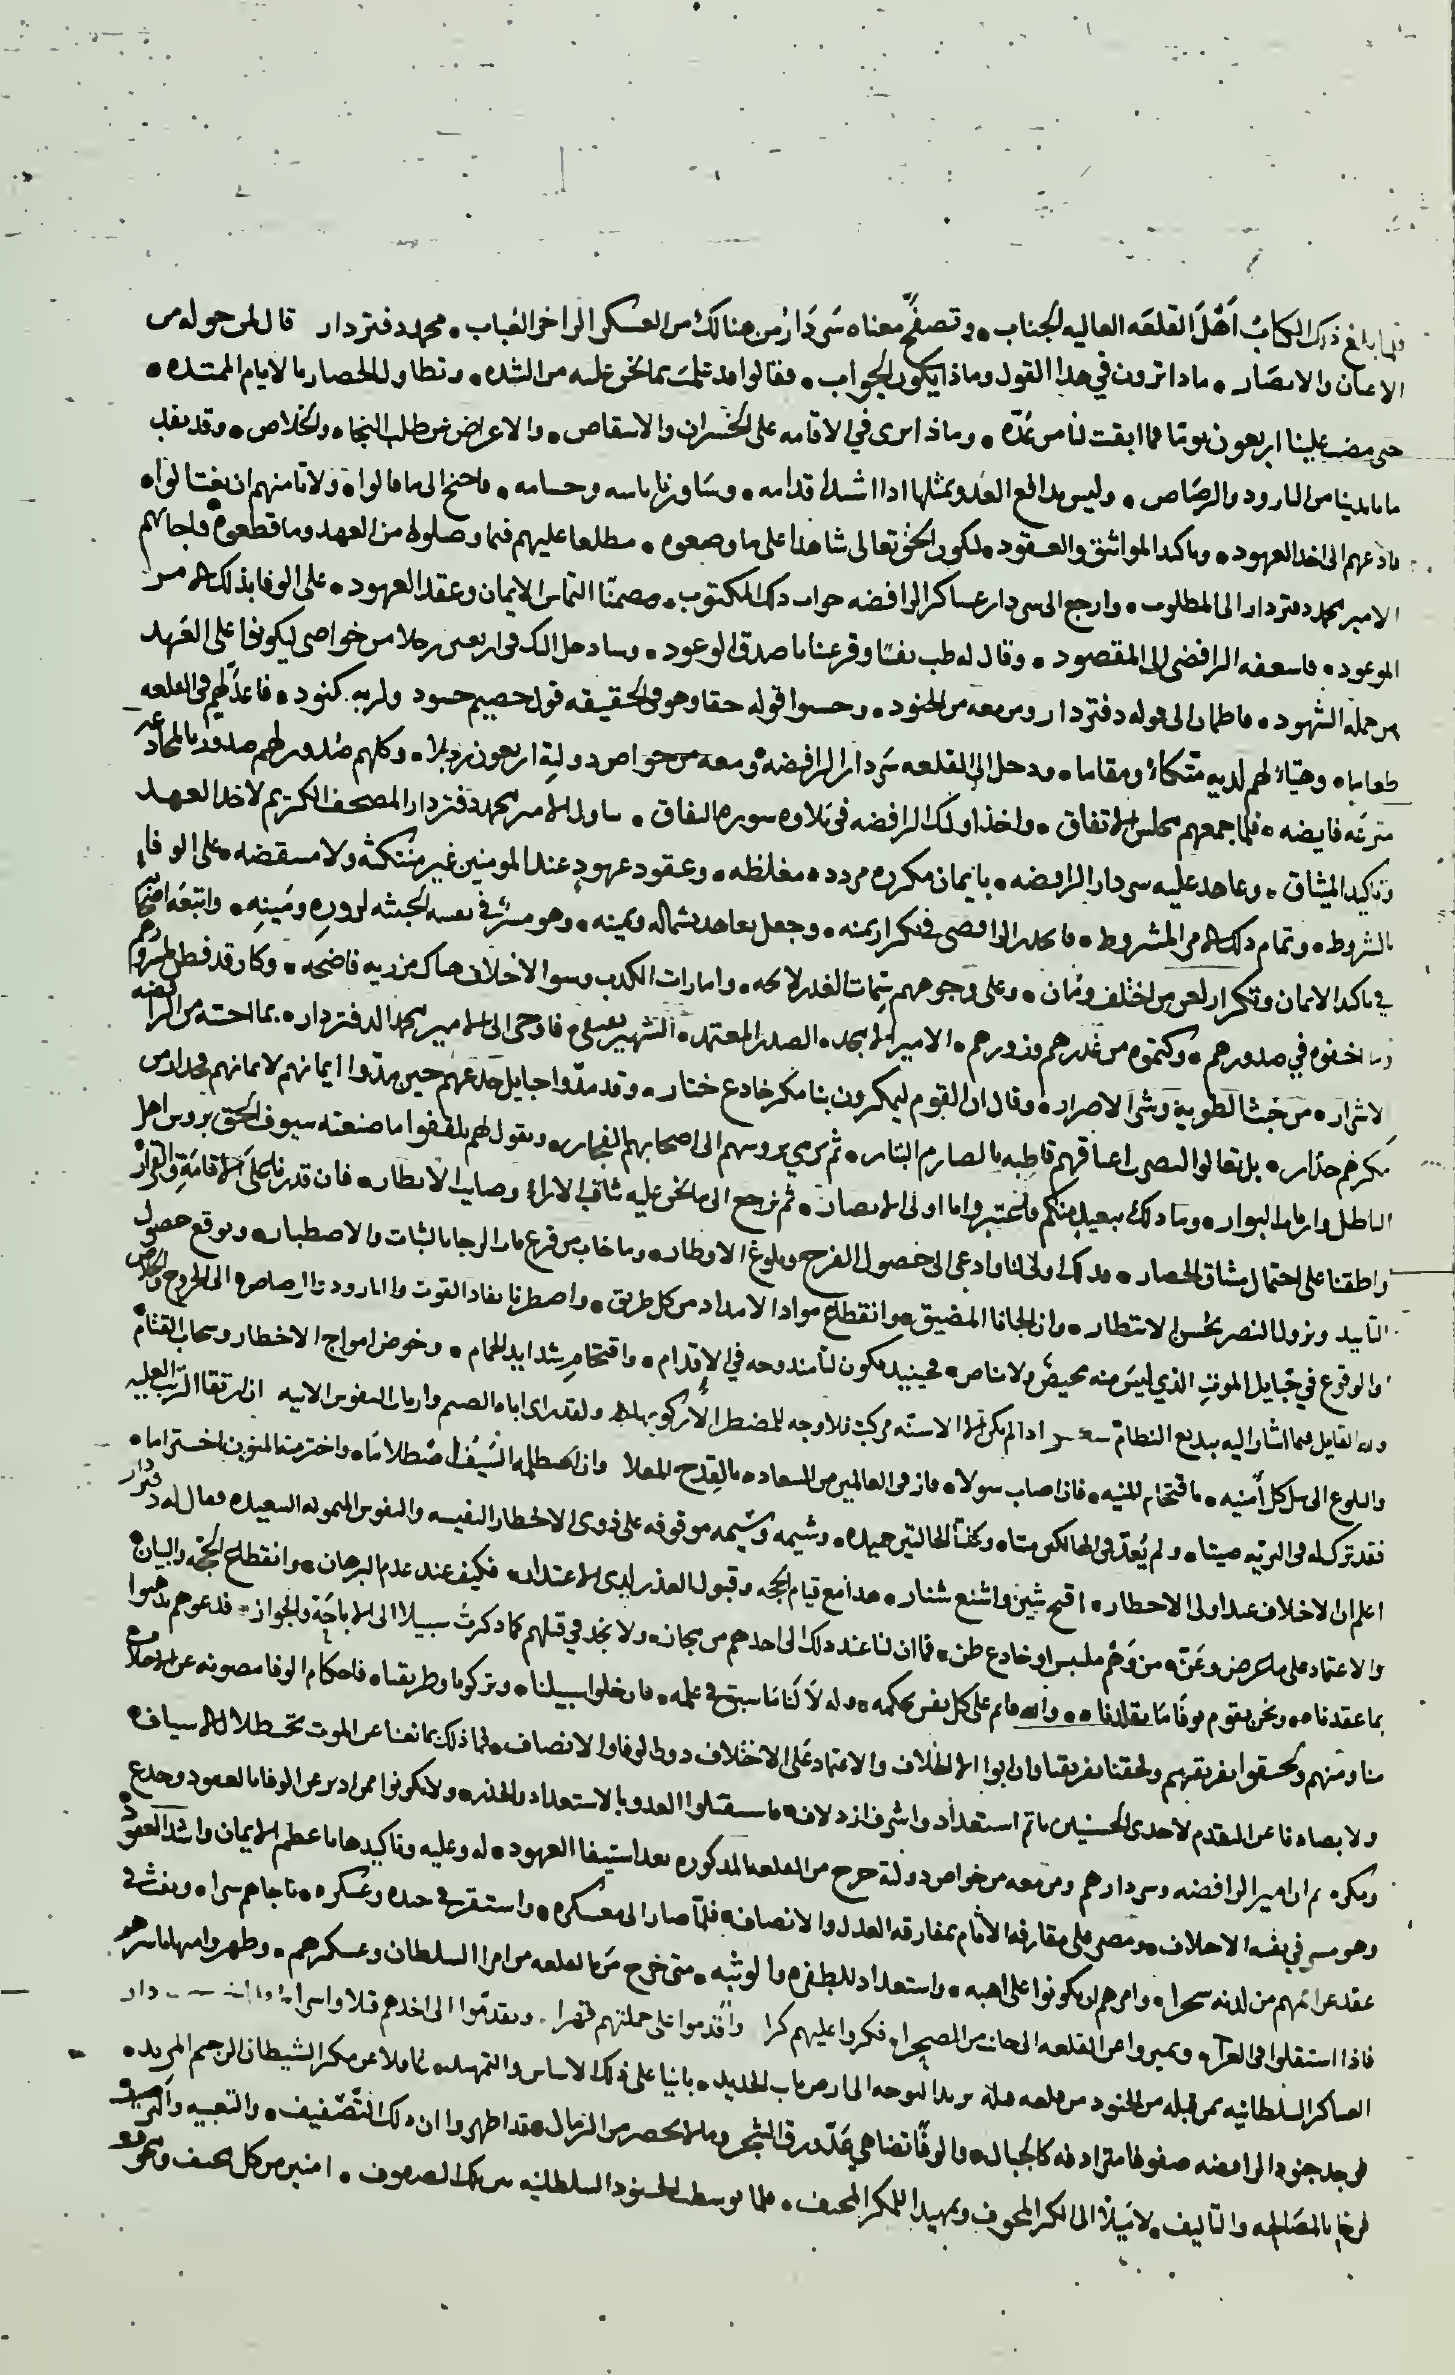 فلما بلغ ذلك الكتاب أهل القلعه العاليه الجناب وتصفح معناه سردار من هنالك من العسكر الى اخر الغباب محمد دفتردار قال لمن حوله من
الاعيان والابصار ماذا ترون في هذا القول وماذا يكون الجواب فقالوا قد علمت بما نحن عليه من الشده وتطاول الحصار بالايام الممتده
حتى مضت علينا اربعون يوما فما ابقت لنا من عده وماذا نرى في الاقامه على الخسران والانتقاص والاعراض عن طلب النجاه والخلاص وقد نفد
ما بايدينا من البارود والرصاص وليس يدافع العدو بمثلها اذا اشتد اقدامه وساورنا باسه وحسامه فاجنح الى ما قالوا ولا تامنهم ان يغتالوا
فادعهم الى اخذ العهود وتاكيد المواثيق والعقود ليكون الحق تعالى شاهدا على ما وضعوه مطلعا عليهم فيما وصلوه من العهد وما قطعوه فاجابهم
الامير محمد دفتردار الى المطلوب وارجع الى سردار عساكر الرافضه جواب ذلك المكتوب مضمنا التماس الايمان وعقد العهود على الوفا بذلك الامر
الموعود فاسعفه الرافضي الى المقصود وقال له طب نفسا وقر عينا بصدق الوعود وسادخل اليك في اربعين رجلا من خواصي ليكونوا على العهد
من جمله الشهود فاطمان الى قوله دفتردار ومن معه من الجنود وحسبوا قوله حقا وهو في الحقيقه قول خصيم حسود ولربه كنود فاعد لهم في القلعه
طعاما وهيا لهم لديه متكأ ومقاما ودخل الى القلعه سردار الرافضه ومعه من خواص دولته اربعون رجلا وكلهم صدورهم صدور بالمخادعه
مترعه فايضه فلما جمعهم مجلس الاتفاق واخذ اولئك الرافضه في تلاوه سوره النفاق ناول الامير محمد دفتردار المصحف الكريم لاخذ العهد
وتاكيد الميثاق وعاهد عليه سردار الرافضه بايمان مكرره مردده مغلظه وعقود عهود عند المومنين غير منتكثه ولا منتقضه على الوفا
بالشروط وتمام ذلك الامر المشروط فاخذ الرافضي في تكرار يمينه وجعل يعاهد بشماله ويمينه وهو مسر في نفسه الخبيثه لزوره ومينه واتبعه اصحابه
في تاكيد الايمان وتكرار لعن من اختلف ومان وعلى وجوههم سمات الغدر لائحه وامارات الكذب وسوا الاخلاق هناك مزريه فاضحه وكان قد فطن لمكرهم
وما اخفوه في صدورهم وكتموه من غدرهم وزورهم الامير الامجد الصدر المعتمد الشهير فاوحى الى الامير محمد الدفتردار بما احسه من الرافضه
الاشرار من خبث الطويه وشر الاصرار وقال ان القوم ليمكرون بنا مكر خادع ختار وقد مدوا حبايل خدعهم حين مدوا ايمانهم لايمانهم فحذار من
مكرهم حذار بل تعالوا لنضرب اعناقهم قاطبه بالصارم البتار ثم نرمي بروسهم الى اصحابهم الفجار ونقول لهم تلقفوا ما صنعته سيوف الحق بروس اهل
الباطل وارباب البوار وما ذلك ببعيد منكم فاعتبروا يا اولي الابصار ثم نرجع الى ما نحن عليه ثاقب الاراء وصايب الانظار فان قدرنا على الاقامه والقرار
واطقنا على احتمال مشاق الحصار فذلك اولى لنا وادعى الى حصول الفرج وبلوغ الاوطار وما خاب من قرع باب الرجا بالثبات والاصطبار وتوقع حصول
التاييد ونزول النصر بحسن الانتظار وان الجانا المضيق وانقطاع مواد الامداد من كل طريق واضطرنا نفاد القوت والبارود والرصاص الى الخروج والخلاص
والوقوع في حبايل الموت الذي ليس منه محيص ولا مناص فحينيذ يكون لنا مندوحه في الاقدام واقتحام شدايد الحمام وخوض امواج الاخطار وسحاب القتام
ولله القايل فيما اشار اليه ببديع النظام شعر اذا لم يكن الا الاسنه مركب فلا وجه للمضطر الا ركوبها ولقد راى اباه الضيم وارباب النفوس الابيه ان ارتقا الرتب العليه
والبلوغ الى نيل كل امنيه باقتحام المنيه فاذا اصاب سولا فاز في العالمين من السعاده بالقدح المعلا وان اصطلمه السيف اصطلاما واخترمته المنون اختراما
فقد ترك له في البريه صيتا ولم يعد في الهالكين ميتا وكلتا الحالتين حميده وشيمه وشيمه موقوفه على ذوي الاخطار النفيسه والنفوس الميمونه السعيده فقال له دفتردار
اعلم ان الاخلاف عند اولي الاخطار اقبح شين واشنع شنار هذا مع قيام الحجه وقبول العذر لدى الاعتذار فكيف عند عدم البرهان وانقطاع الحجه والبيان
والاعتماد على ما عرض وعن من وهم ملبس او خادع ظن فما ان لنا عند ذلك الى احدهم من مجاز ولا نجد في قتلهم كما ذكرت سبيلا الى الاباحه والجواز فدعوهم يذهبوا
بما عقدنا ونحن نقوم بوفا ما تقلدنا والله قايم على كل نفس بحكمه وله لا كما سبق في علمه فان خلوا سبيلنا وتركونا وطريقنا فاحكام الوفا مصونه عن الاخلاف
منا ومنهم ولحقوا بفريقهم ولحقنا بفريقنا وان ابوا الا الخلاف والاعتماد على الاختلاف دون الوفا والانصاف فما ذلك بمانعنا عن الموت تحت ظلال الاسياف
ولا بصادنا عن التقدم لاحدى الحسنيين باتم استعداد واشرف ازدلاف فاستقبلوا العدو بالاستعداد والحذر ولا تكونوا ممن ادبر عن الوفا بالعهود وخدع
ومكر ثم ان امير الرافضه وسردارهم ومن معه من خواص دولته خرج من القلعه المذكوره بعد استيفا العهود له وعليه وتاكيدها باعظم الايمان واشد العقود
وهو مسر في نفسه الاخلاف ومصر على مقارفه الاثام بمفارقه العدل والانصاف فلما صار الى معسكره واستقر في جنده وعسكره ناجاهم سرا ونفث في
عقد عزايمهم من لدنه سحرا وامرهم ان يكونوا على اهبه واستعداد للطفره والوثبه متى خرج من بالقلعه من امرا السلطان وعسكرهم وظهروا منها باسرهم
فاذا استقلوا في العراء وتميزوا عن القلعه الى جانب من الصحرا فكروا عليهم كرا واقدموا على جملتهم قهرا وتقدموا الى اخذهم قتلا واسرا دار
العساكر السلطانيه بمن قبله من الجنود من قلعه يريد التوجه الى ارض باب الحديد بانيا على ذلك الاساس والتمهيد غافلا عن مكر الشيطان الرجيم المريد
فوجد جنود الرافضه صفوفا مترادفه كالجبال والوفا تضاهي عد ورق الشجر وما لا يحصر من الرمال قد اظهروا ان ذلك التصفيف والتعبيه والترصيف
فرحا بالمصالحه والتاليف لا نيلا الى الكر المخوف وتمهيدا للمكر المحيف فلما توسطت الجنود السلطانيه بين تلك الصفوف امنين من كل محيف ومخوف